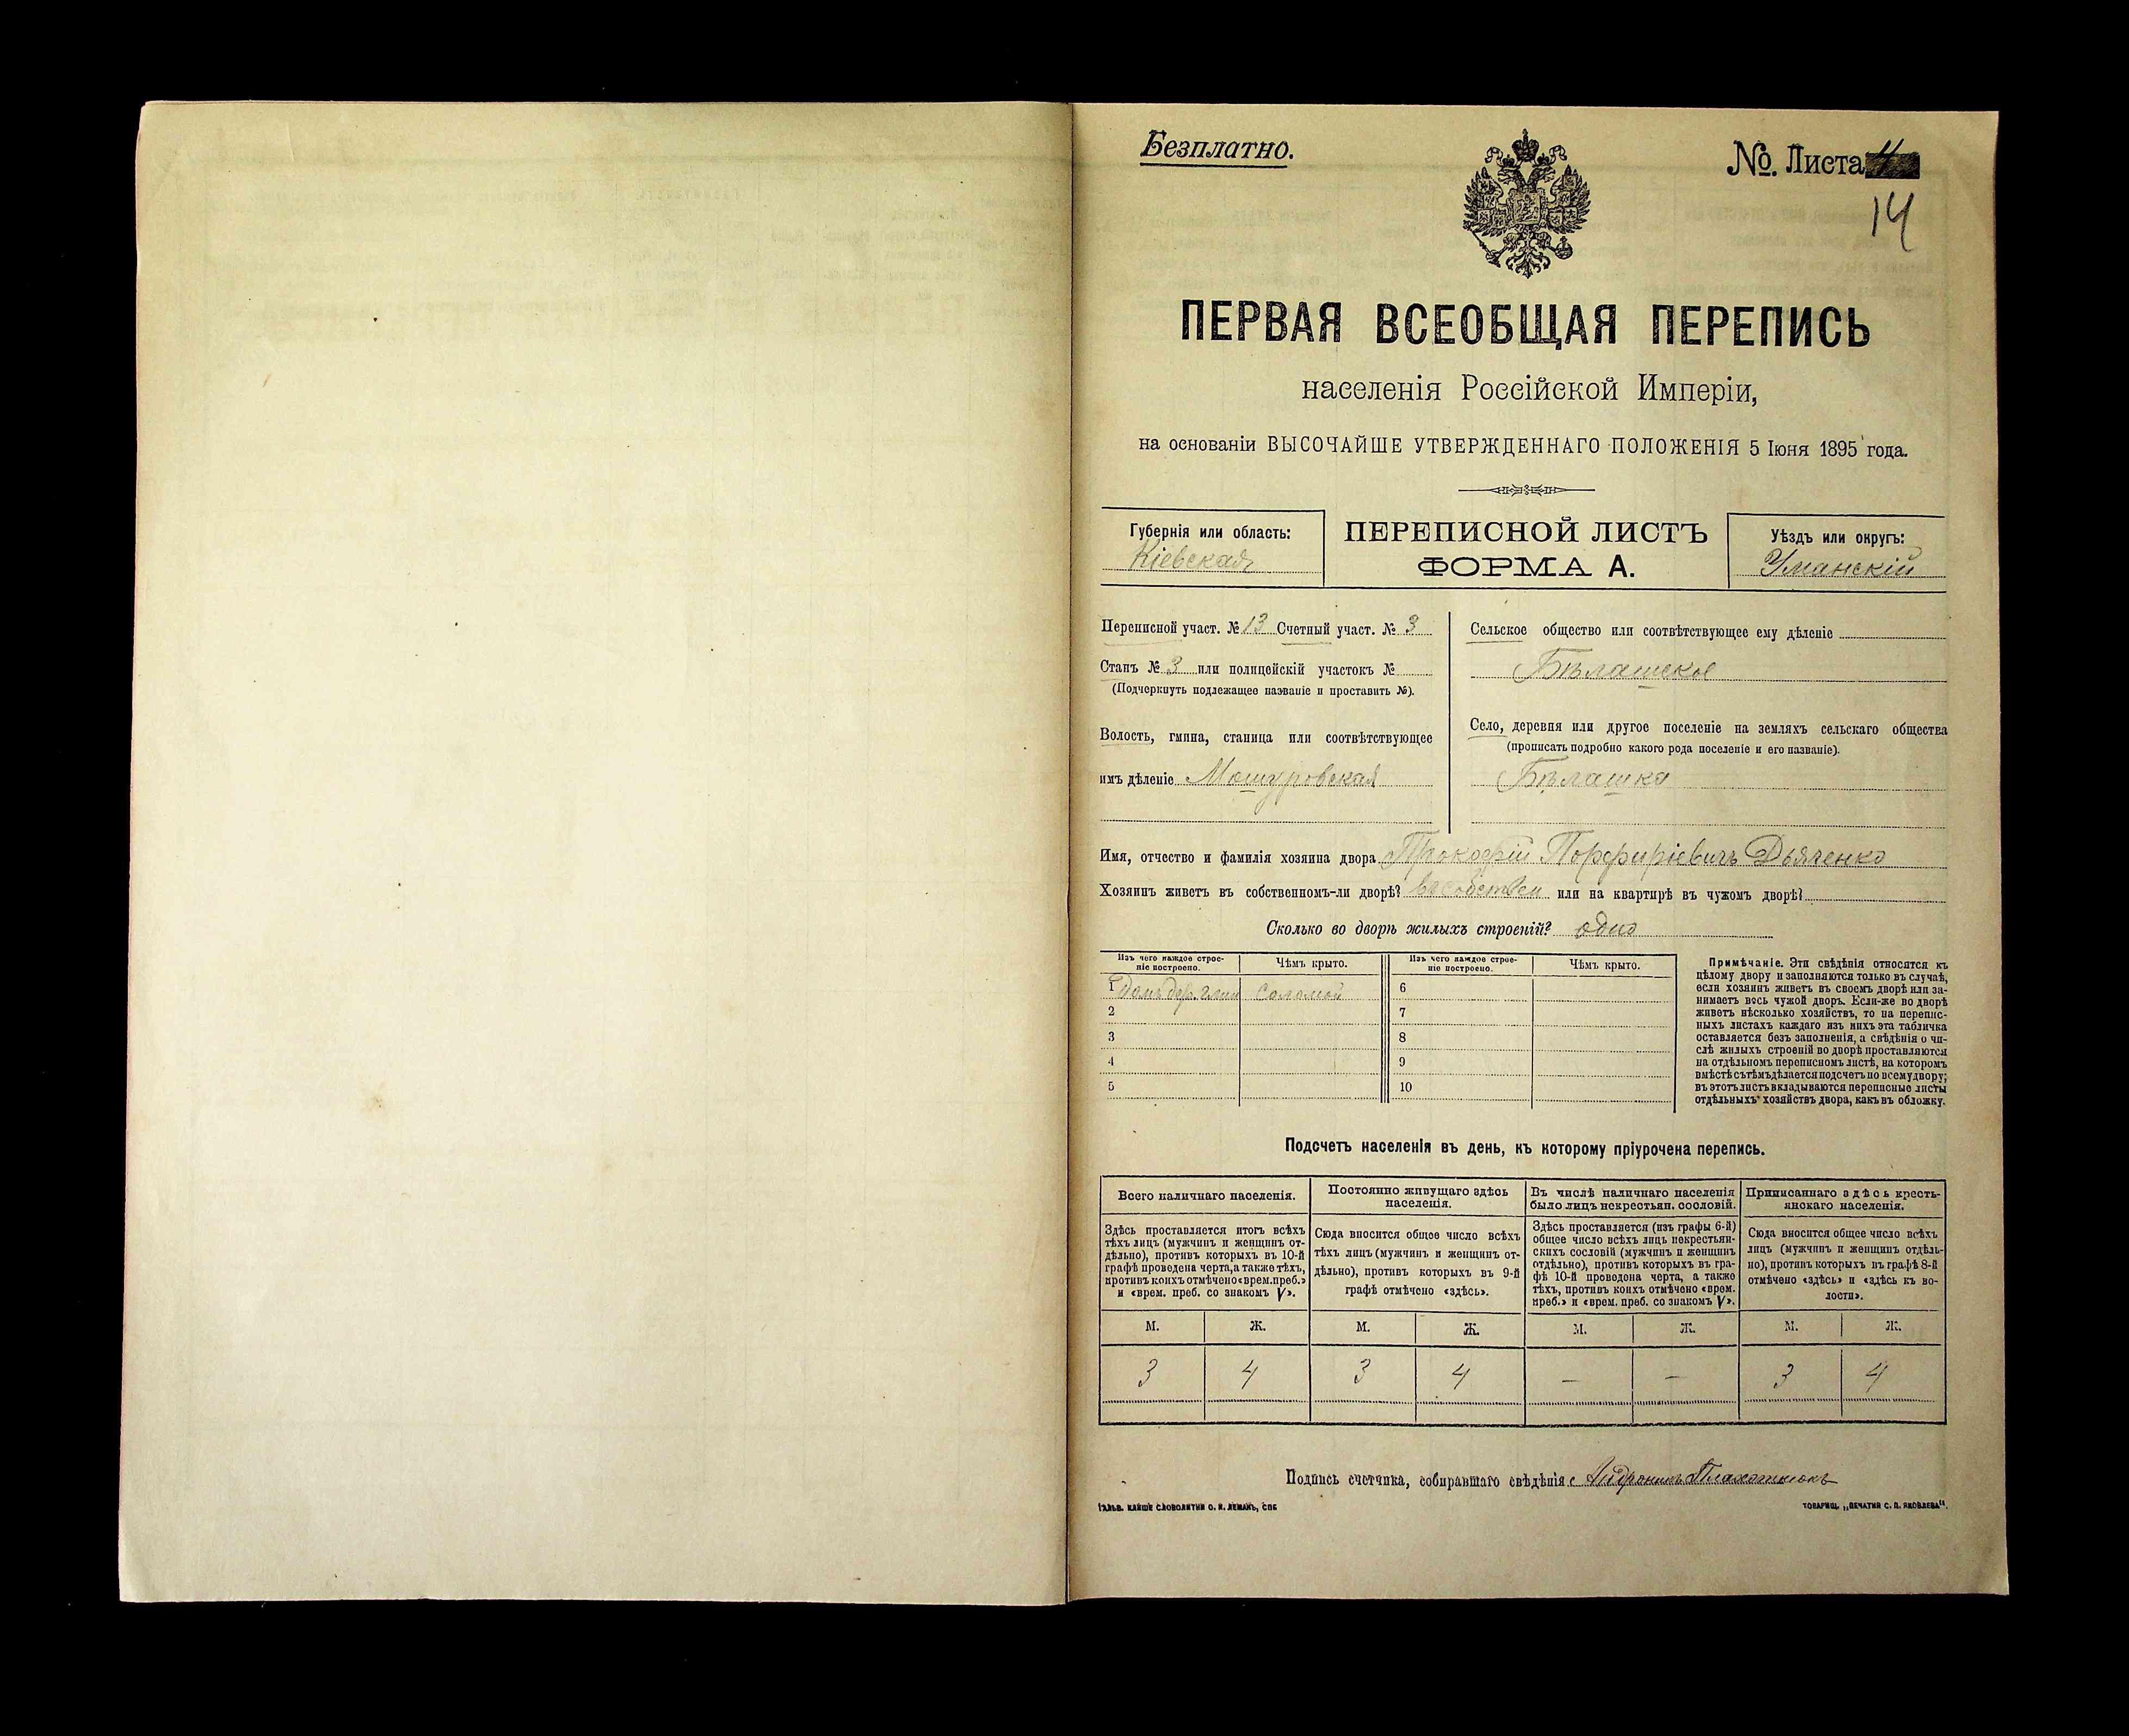 Безплатно.
№. Листа 4
14
ПЕРВАЯ ВСЕОБЩАЯ ПЕРЕПИСЬ
населенія Россійской Имперіи,
на основаніи ВЫСОЧАЙШЕ УТВЕРЖДЕННАГО ПОЛОЖЕНІЯ 5 Іюня 1895 года.
Губернія или область:
Кіевская
ПЕРЕПИСНОЙ ЛИСТЪ
ФОРМА А.
Уѣздъ или округъ:
Уманскій
Переписной участ. № 13 Счетный участ. № 3
Станъ № 3 или полицейскій участокъ №
(Подчеркнуть подлежащее названіе и проставить №).
Волость, гмина, станица или соотвѣтствующее
имъ дѣленіе Мошуровская
Сельское общество или соотвѣтствующее ему дѣленіе
Бѣлашское
Село, деревня или другое поселеніе на земляхъ сельскаго общества
(прописать подробно какого рода поселеніе и его названіе).
Бѣлашка
Имя, отчество и фамилія хозяина двора Прокофій Порфиріевичъ Дьяченко
Хозяинъ живетъ въ собственномъ-ли дворѣ? въ собствен или на квартирѣ въ чужомъ дворѣ?
Сколько во дворѣ жилыхъ строеній? одно
Изъ чего каждое строе-
ніе построено.
Чѣмъ крыто.
Изъ чего каждое строе-
ніе построено.
Чѣмъ крыто.
1 Домъ дер. глин соломой
2
3
4
5
6
7
8
9
10
Примѣчаніе. Эти свѣдѣнія относятся къ
цѣлому двору и заполняются только въ случаѣ,
если хозяинъ живетъ въ своемъ дворѣ или за-
нимаетъ весь чужой дворъ. Если-же во дворѣ
живетъ нѣсколько хозяйствъ, то на перепис-
ныхъ листахъ каждаго изъ нихъ эта табличка
оставляется безъ заполненія, а свѣдѣнія о чи-
слѣ жилыхъ строеній во дворѣ проставляются
на отдѣльномъ переписномъ листѣ, на которомъ
вмѣстѣ съ тѣмъ дѣлается подсчетъ по всему двору;
въ этотъ листъ вкладываются переписные листы
отдѣльныхъ хозяйствъ двора, какъ въ обложку.
Подсчетъ населенія въ день, къ которому пріурочена перепись.
Всего наличнаго населенія.
Здѣсь проставляется итогъ всѣхъ
тѣхъ лицъ (мужчинъ и женщинъ от-
дѣльно), противъ которыхъ въ 10-й
графѣ проведена черта, а также тѣхъ,
противъ коихъ отмѣчено «врем. преб.»
и «врем. преб. со знакомъ V».
Постоянно живущаго здѣсь
населенія.
Сюда вносится общее число всѣхъ
тѣхъ лицъ (мужчинъ и женщинъ от-
дѣльно), противъ которыхъ въ 9-й
графѣ отмѣчено «здѣсь».
Въ числѣ наличнаго населенія
было лицъ некрестьян. сословій.
Здѣсь проставляется (изъ графы 6-й)
общее число всѣхъ лицъ некрестьян-
скихъ сословій (мужчинъ и женщинъ
отдѣльно), противъ которыхъ въ гра-
фѣ 10-й проведена черта, а также
тѣхъ, противъ коихъ отмѣчено «врем.
преб.» и «врем. преб. со знакомъ V».
Приписаннаго здѣсь кресть-
янскаго населенія.
Сюда вносится общее число всѣхъ
лицъ (мужчинъ и женщинъ отдѣль-
но), противъ которыхъ въ графѣ 8-й
отмѣчено «здѣсь» и «здѣсь къ во-
лости».
М. Ж. М. Ж. М. Ж. М. Ж.
3 4 3 4 — — 3 4
Подпись счетчика, собиравшаго свѣдѣнія Андроникъ Плахотнюкъ
ГАЛЬВ. КЛИШЕ СЛОВОЛИТНИ О. И. ЛЕМАНЪ, СПБ
ТОВАРИЩ. „ПЕЧАТНЯ С. П. ЯКОВЛЕВА".